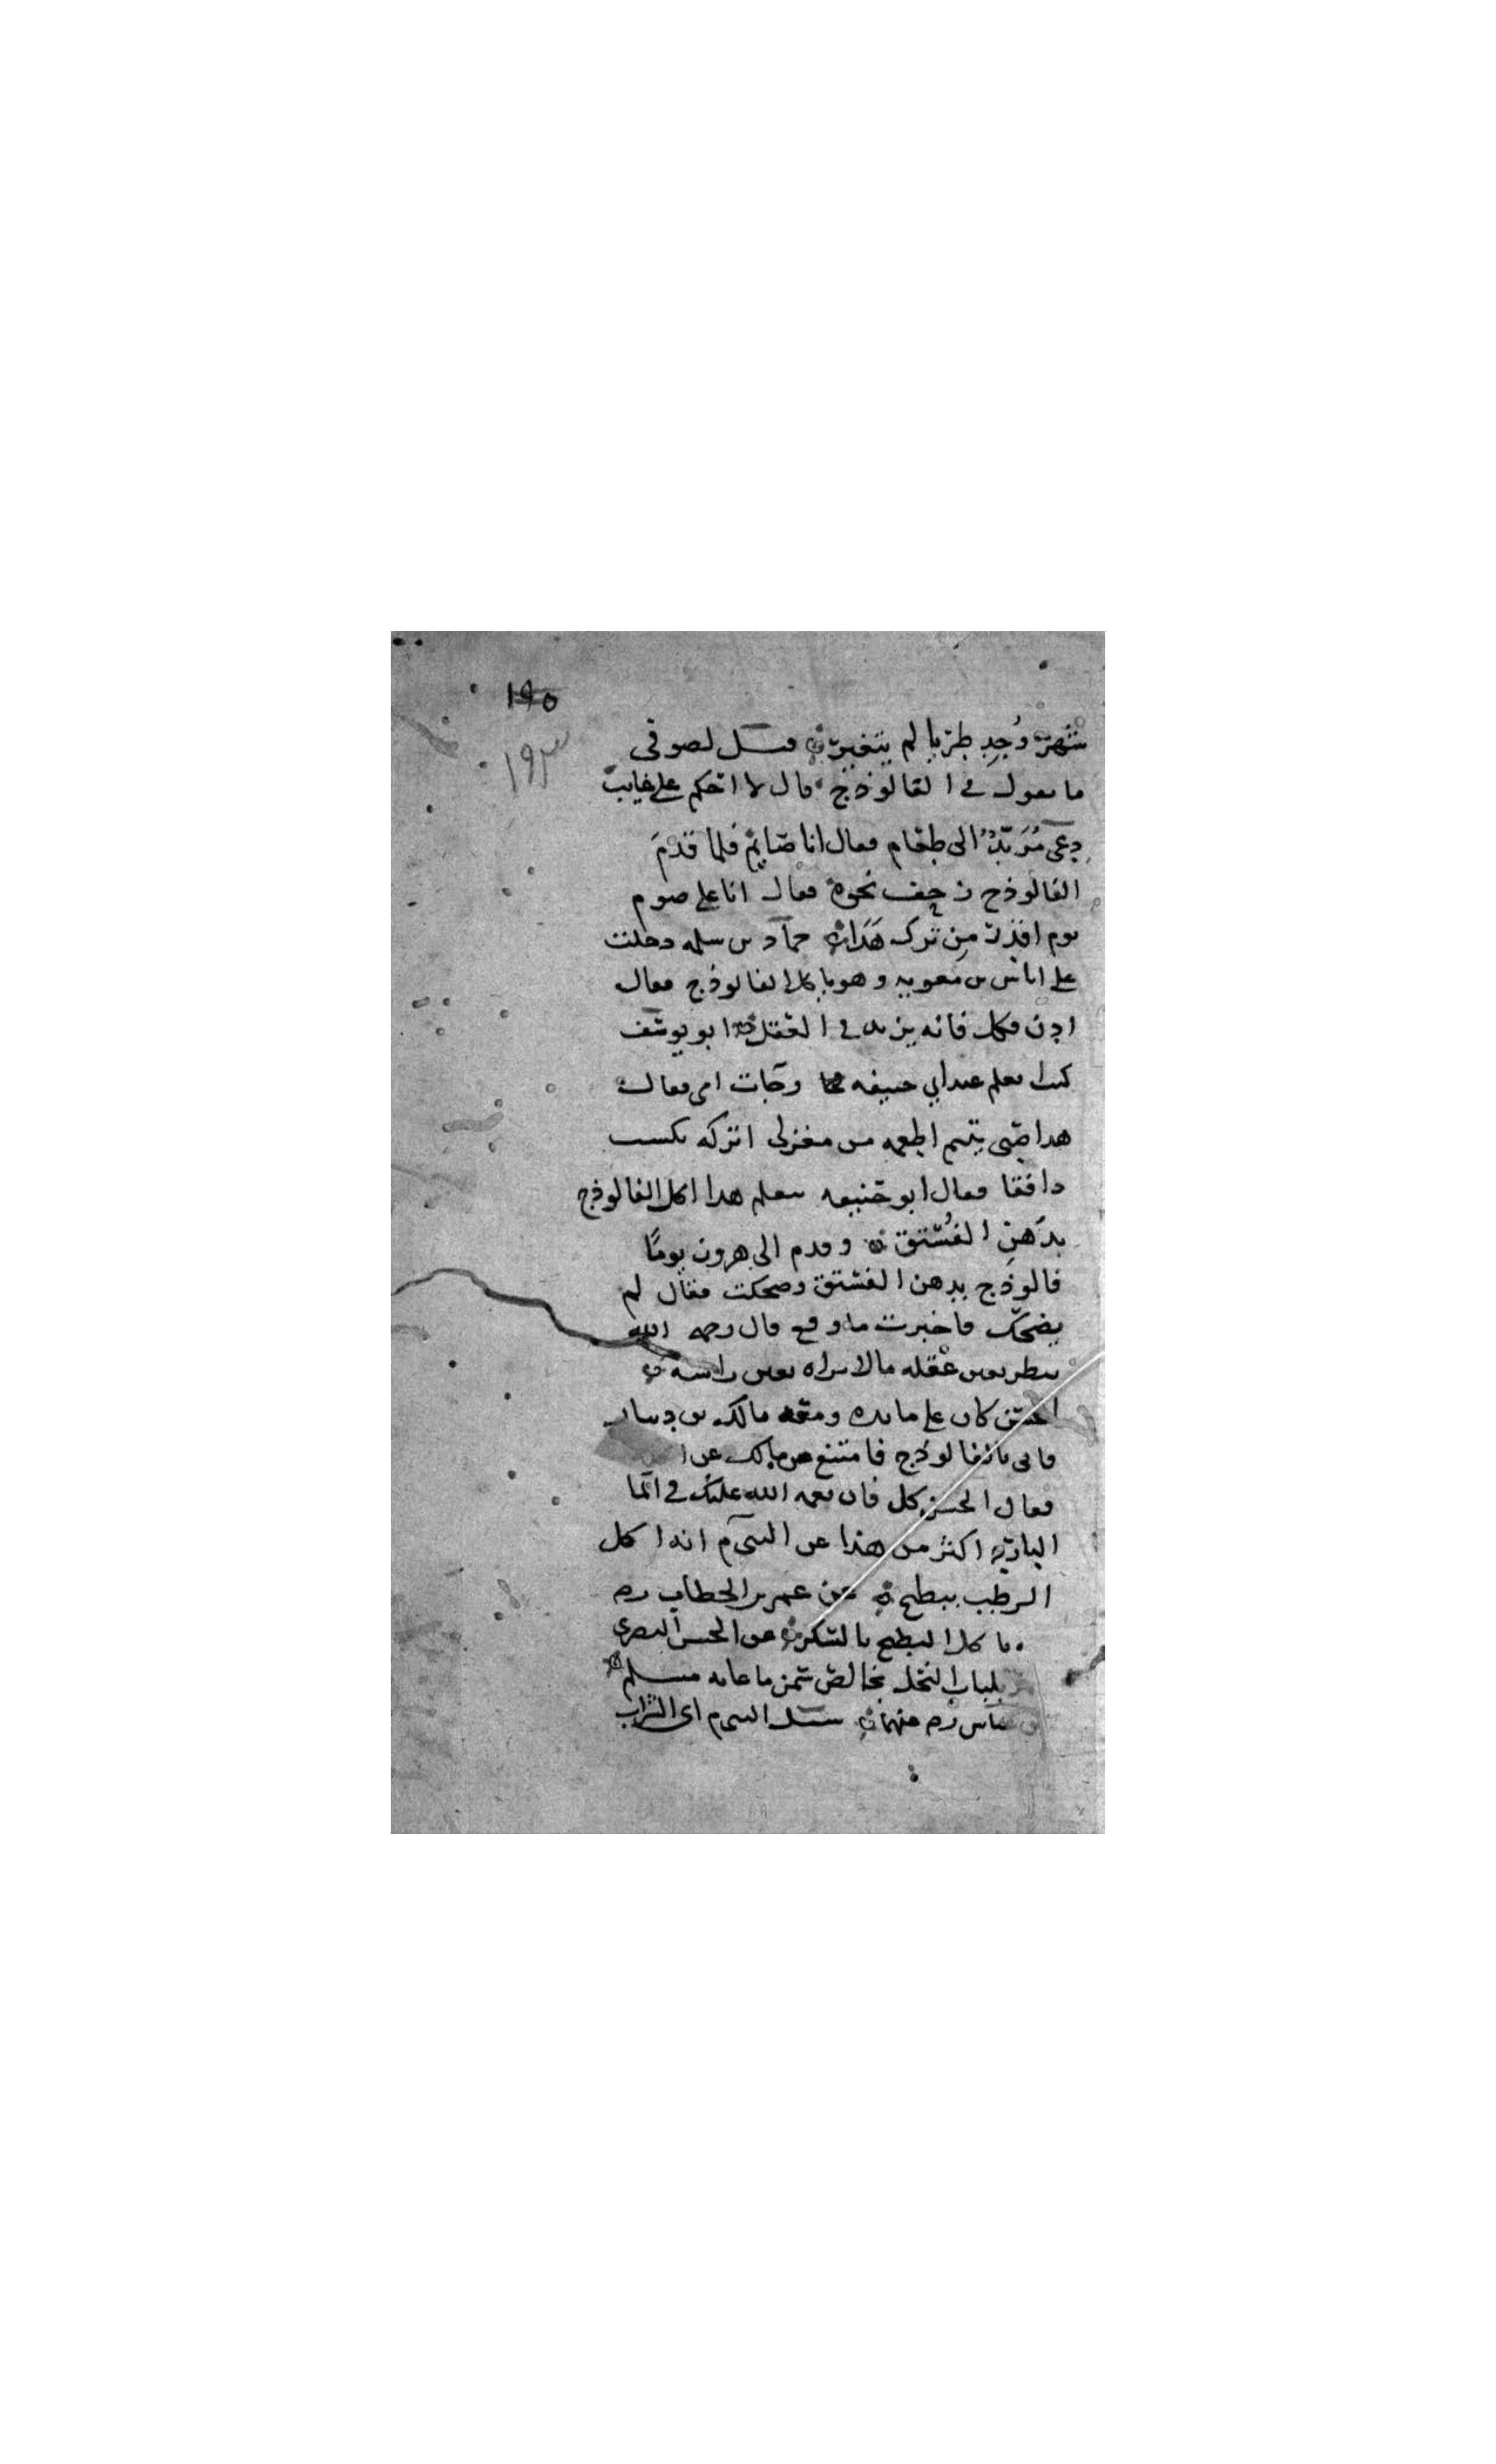 ١٩٥
١٩٣
شهر وُجِد طريا لم يتغير ۞ قيل لصوفى
ما تقول في الفالوذج قال لا احكم على غايب
دعى مُزَبّدٌ الى طعام فقال انا صايم فلما قدّمَ
الفالوذج زحف نحوه فقال انا على صوم
يوم اقدر من ترك هَذَا ۞ حماد بن سلمه دخلت
على اياس بن معويه وهو ياكل الفالوذج فقال
ادن فكل فانه يزيد في العقل ۞ ابو يوسف
كنت اتعلم عند ابي حنيفه وجات امى فقالت
هدا صبى يتيم اطعمه من مغزلى اتركه يكسب
دانقا فقال ابو حنيفه يتعلم هدا اكل الفالوذج
بدهنِ الفُستق ۞ وقدم الى هرون يومًا
فالوذج بدهن الفستق وضحكت فقال لم
يضحك فاخبرت ما وقع قال رحمه الله
ينظر بعين عقله مالا يراه بعين راسه ۞
الحسن كان على مايده ومعه مالك بن دينار
فاتى بالفالوذج فامتنع مالك عن
فقال الحسن كل فان نعمه الله عليك في الما
البارد اكثر من هذا عن النبي م انه اكل
الرطب ببطيخ ۞ عن عمر بن الخطاب رضه
ياكل البطيخ بالسكر ۞ عن الحسن البصرى
بلباب النحل بخالص سمن ما عابه مسلم ۞
عباس رضه عنهما ۞ سئل النبي م اى الشراب